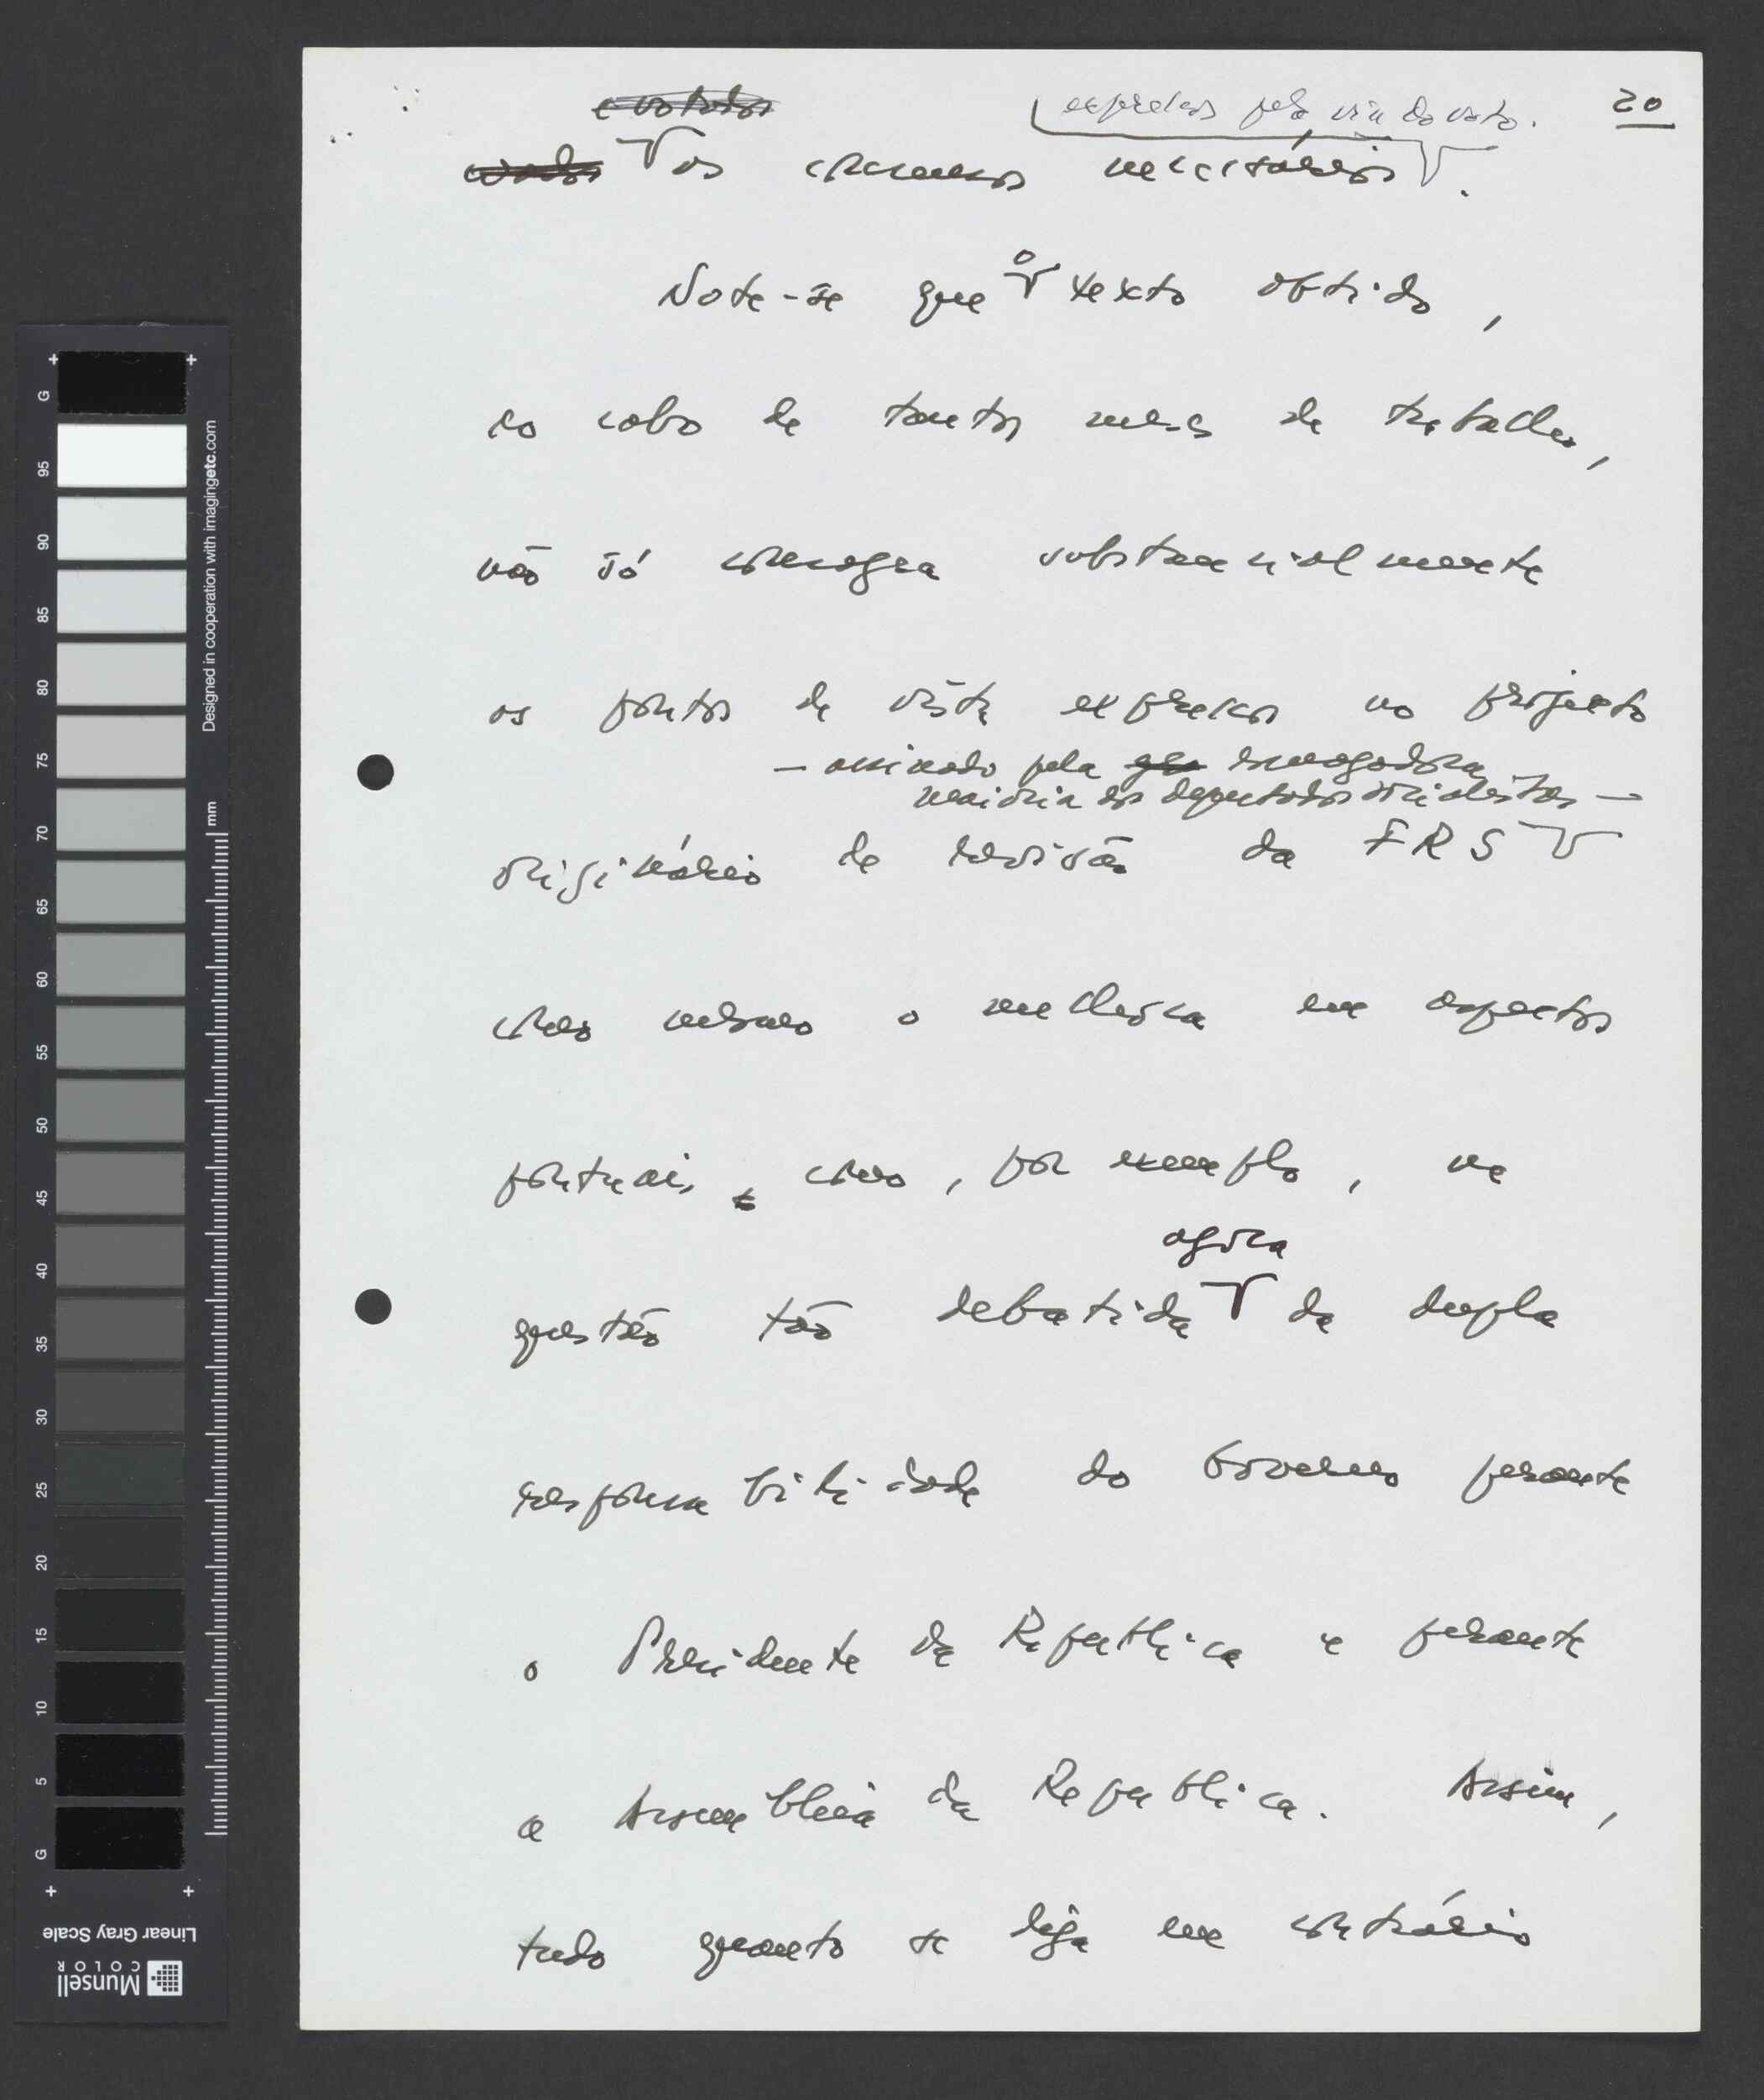 20
e votados
expressos pela via do voto.
os consensos necessários.
o
Note-se que texto obtido,
ao cabo de tantos meses de trabalho,
não só consagra substancialmente
os pontos de vista expressos no projecto
— assinado pela esmagadora
maioria dos deputados socialistas —
originário de revisão da FRS
como mesmo o melhora em aspectos
pontuais, como, por exemplo, na
agora
questão tão debatida da dupla
responsabilidade do Governo perante
o Presidente da República e perante
a Assembleia da República. Assim,
tudo quanto se diga em contrário
G
95
90
85
80
75
70
65
60
55
50
45
40
35
30
25
20
15
10
5
G
Designed in cooperation with imagingetc.com
mm
Linear Gray Scale
Munsell
COLOR